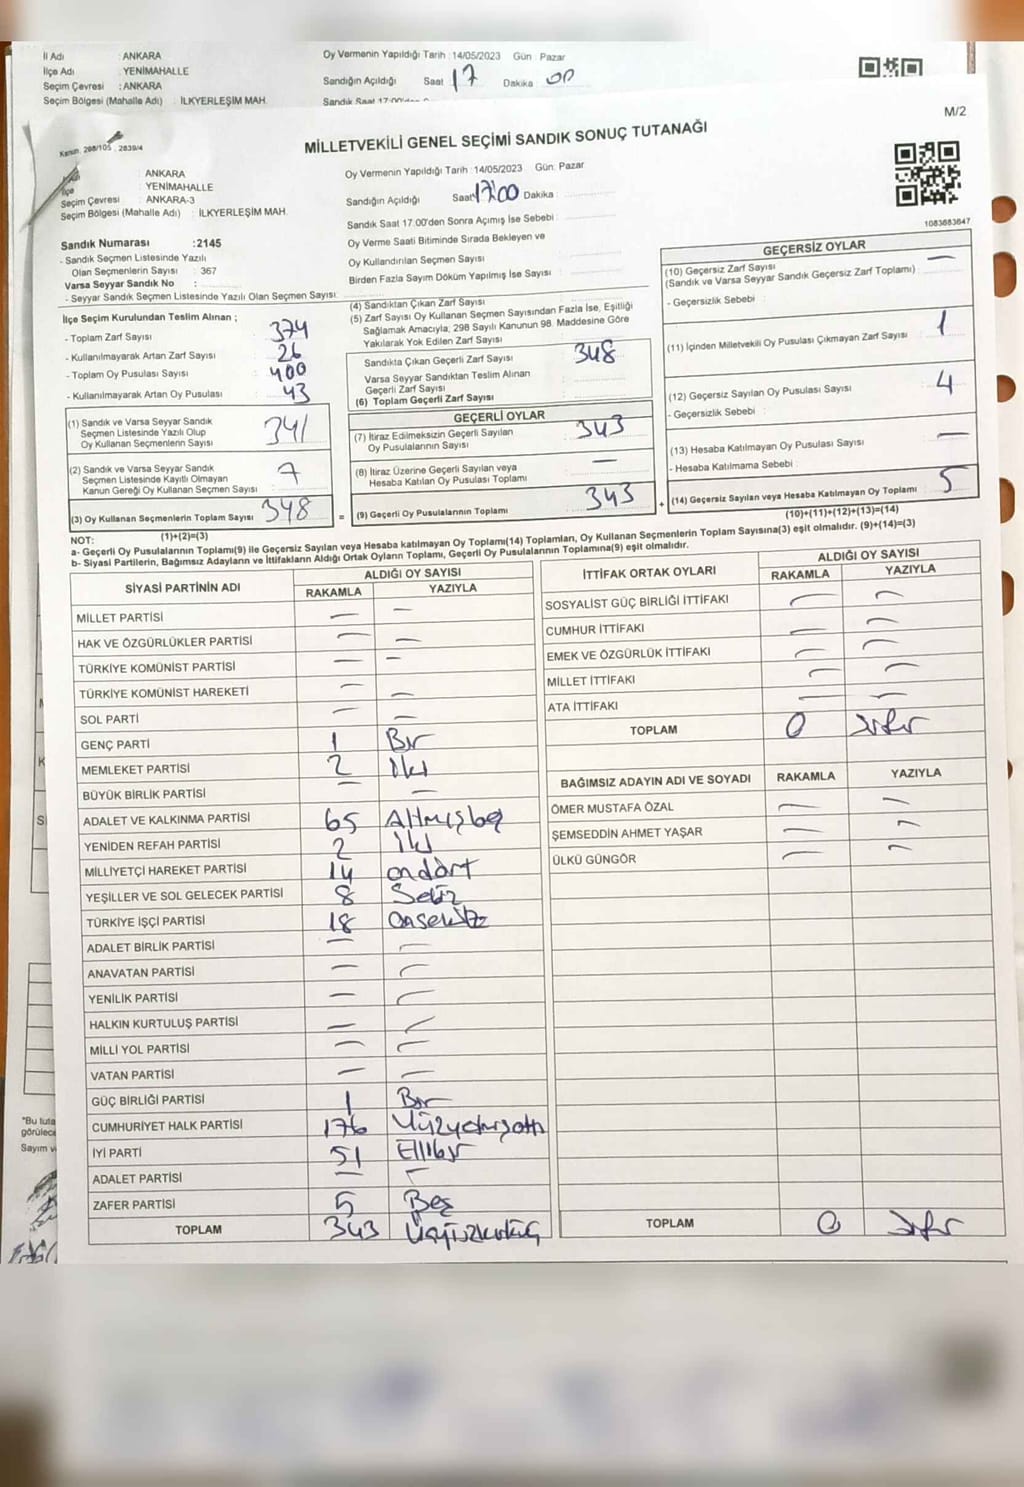 İl Adı : ANKARA
İlçe Adı : YENİMAHALLE
Seçim Çevresi : ANKARA
Seçim Bölgesi (Mahalle Adı) : İLKYERLEŞİM MAH.
Oy Vermenin Yapıldığı Tarih : 14/05/2023 Gün Pazar
Sandığın Açıldığı Saat 17 Dakika 00
Sandık Saat 17:00'den
M/2
MİLLETVEKİLİ GENEL SEÇİMİ SANDIK SONUÇ TUTANAĞI
Kanun. 298/105 , 2839/4
: ANKARA
İlçe : YENİMAHALLE
Seçim Çevresi : ANKARA-3
Seçim Bölgesi (Mahalle Adı) : İLKYERLEŞİM MAH.
Oy Vermenin Yapıldığı Tarih :14/05/2023 Gün: Pazar
Sandığın Açıldığı Saat 17:00 Dakika :
Sandık Saat 17.00'den Sonra Açımış İse Sebebi :
Oy Verme Saati Bitiminde Sırada Bekleyen ve
Oy Kullandırılan Seçmen Sayısı :
Birden Fazla Sayım Döküm Yapılmış İse Sayısı :
1083683647
Sandık Numarası :2145
- Sandık Seçmen Listesinde Yazılı
Olan Seçmenlerin Sayısı : 367
Varsa Seyyar Sandık No :
- Seyyar Sandık Seçmen Listesinde Yazılı Olan Seçmen Sayısı:
İlçe Seçim Kurulundan Teslim Alınan ;
- Toplam Zarf Sayısı : 374
- Kullanılmayarak Artan Zarf Sayısı : 26
- Toplam Oy Pusulası Sayısı : 400
- Kullanılmayarak Artan Oy Pusulası : 43
(1) Sandık ve Varsa Seyyar Sandık
Seçmen Listesinde Yazılı Olup
Oy Kullanan Seçmenlerin Sayısı : 341
(2) Sandık ve Varsa Seyyar Sandık
Seçmen Listesinde Kayıtlı Olmayan
Kanun Gereği Oy Kullanan Seçmen Sayısı : 7
(3) Oy Kullanan Seçmenlerin Toplam Sayısı 348
(1)+(2)=(3)
(4) Sandıktan Çıkan Zarf Sayısı
(5) Zarf Sayısı Oy Kullanan Seçmen Sayısından Fazla İse, Eşitliği
Sağlamak Amacıyla, 298 Sayılı Kanunun 98. Maddesine Göre
Yakılarak Yok Edilen Zarf Sayısı :
Sandıkta Çıkan Geçerli Zarf Sayısı : 348
Varsa Seyyar Sandıktan Teslim Alınan
Geçerli Zarf Sayısı :
(6) Toplam Geçerli Zarf Sayısı :
GEÇERLİ OYLAR
(7) İtiraz Edilmeksizin Geçerli Sayılan
Oy Pusulalarının Sayısı : 343
(8) İtiraz Üzerine Geçerli Sayılan veya
Hesaba Katılan Oy Pusulası Toplamı : —
= (9) Geçerli Oy Pusulalarının Toplamı : 343
GEÇERSİZ OYLAR
(10) Geçersiz Zarf Sayısı —
(Sandık ve Varsa Seyyar Sandık Geçersiz Zarf Toplamı) :
- Geçersizlik Sebebi :
(11) İçinden Milletvekili Oy Pusulası Çıkmayan Zarf Sayısı : 1
(12) Geçersiz Sayılan Oy Pusulası Sayısı : 4
- Geçersizlik Sebebi :
(13) Hesaba Katılmayan Oy Pusulası Sayısı : —
- Hesaba Katılmama Sebebi :
+ (14) Geçersiz Sayılan veya Hesaba Katılmayan Oy Toplamı : 5
(10)+(11)+(12)+(13)=(14)
NOT:
a- Geçerli Oy Pusulalarının Toplamı(9) ile Geçersiz Sayılan veya Hesaba katılmayan Oy Toplamı(14) Toplamları, Oy Kullanan Seçmenlerin Toplam Sayısına(3) eşit olmalıdır. (9)+(14)=(3)
b- Siyasi Partilerin, Bağımsız Adayların ve İttifakların Aldığı Ortak Oyların Toplamı, Geçerli Oy Pusulalarının Toplamına(9) eşit olmalıdır.
SİYASİ PARTİNİN ADI ALDIĞI OY SAYISI
RAKAMLA YAZIYLA
MİLLET PARTİSİ — —
HAK VE ÖZGÜRLÜKLER PARTİSİ — —
TÜRKİYE KOMÜNİST PARTİSİ — —
TÜRKİYE KOMÜNİST HAREKETİ — —
SOL PARTİ — —
GENÇ PARTİ 1 Bir
MEMLEKET PARTİSİ 2 İki
BÜYÜK BİRLİK PARTİSİ — —
ADALET VE KALKINMA PARTİSİ 65 Altmışbeş
YENİDEN REFAH PARTİSİ 2 İki
MİLLİYETÇİ HAREKET PARTİSİ 14 ondört
YEŞİLLER VE SOL GELECEK PARTİSİ 8 Sekiz
TÜRKİYE İŞÇİ PARTİSİ 18 onsekiz
ADALET BİRLİK PARTİSİ — —
ANAVATAN PARTİSİ — —
YENİLİK PARTİSİ — —
HALKIN KURTULUŞ PARTİSİ — —
MİLLİ YOL PARTİSİ — —
VATAN PARTİSİ — —
GÜÇ BİRLİĞİ PARTİSİ 1 Bir
CUMHURİYET HALK PARTİSİ 176 Yüzyetmişaltı
İYİ PARTİ 51 Ellibir
ADALET PARTİSİ — —
ZAFER PARTİSİ 5 Beş
TOPLAM 343 Üçyüzkırküç
İTTİFAK ORTAK OYLARI ALDIĞI OY SAYISI
RAKAMLA YAZIYLA
SOSYALİST GÜÇ BİRLİĞİ İTTİFAKI — —
CUMHUR İTTİFAKI — —
EMEK VE ÖZGÜRLÜK İTTİFAKI — —
MİLLET İTTİFAKI — —
ATA İTTİFAKI — —
TOPLAM 0 sıfır
BAĞIMSIZ ADAYIN ADI VE SOYADI RAKAMLA YAZIYLA
ÖMER MUSTAFA ÖZAL — —
ŞEMSEDDİN AHMET YAŞAR — —
ÜLKÜ GÜNGÖR — —
TOPLAM 0 sıfır
"Bu tuta
görülece
Sayım v